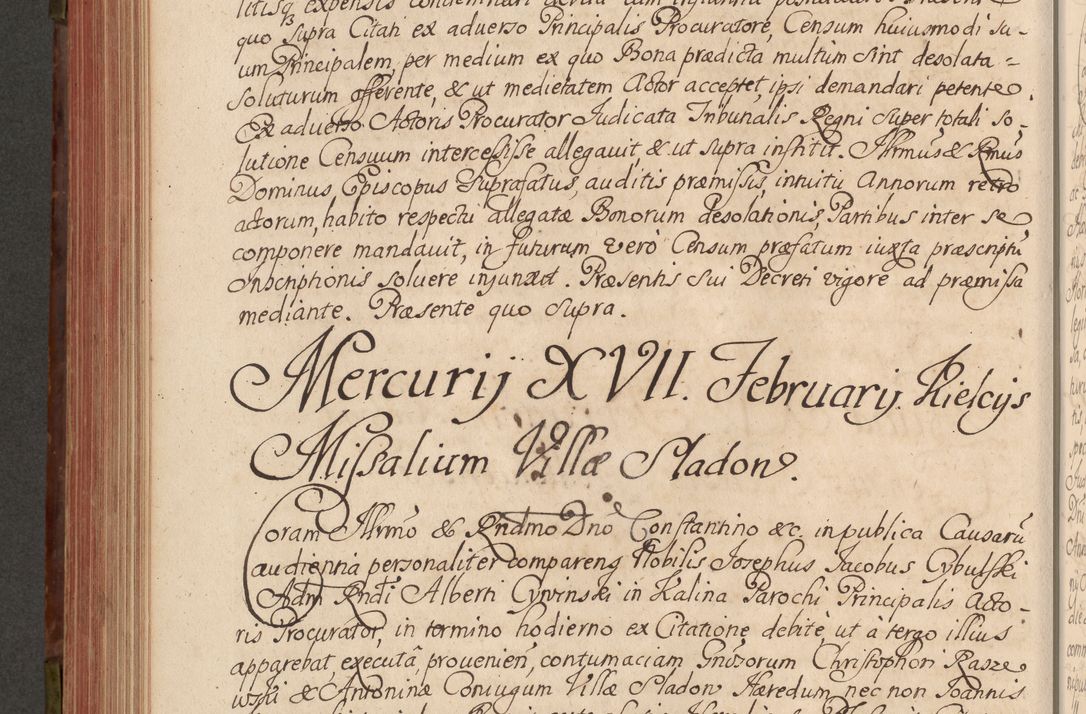 litisq expensis condemnari
quo supra Citati ex adverso Principalis Procuratore, Censum huiusmodi su-
um Principalem, per medium ex quo Bona prædicta multum sint desolata =
soluturum offerente, & ut medietatem Actor acceptet, ipsi demandari petente.
Ex adverso Actoris Procurator Iudicata Tribunalis Regni super totali so-
lutione Censuum intercessisse allegavit, & ut supra institit. Illrmus & Rmus
Dominus Episcopus Suprafatus, auditis præmissis, intuitu Annorum retro
actorum, habito respectu allegatæ Bonorum desolationis, Partibus inter se
componere mandavit, in futurum verò Censum præfatum iuxta præscripti
Inscriptionis soluere injunxit. Præsentis sui Decreti vigore ad præmissa
mediante. Præsente quo supra.
Mercurij XVII. Februarij Kielcijs
Missalium Villæ Sladow.
Coram Illrmo & Rndmo Dno Constantino &c. in publica Causarū
audientia personaliter comparens Nobilis Josephus Jacobus Cybulski
Adm Rndi Alberti Cywinski in Kalina Parochi Principalis Acto-
ris Procurator, in termino hodierno ex Citatione debite, ut à tergo illius
apparebat, executâ, provenien, contumaciam Gnosorum Christophori Rasze
wski & Antoninæ Coniugum Villæ Sladow Hæredum nec non Joannis